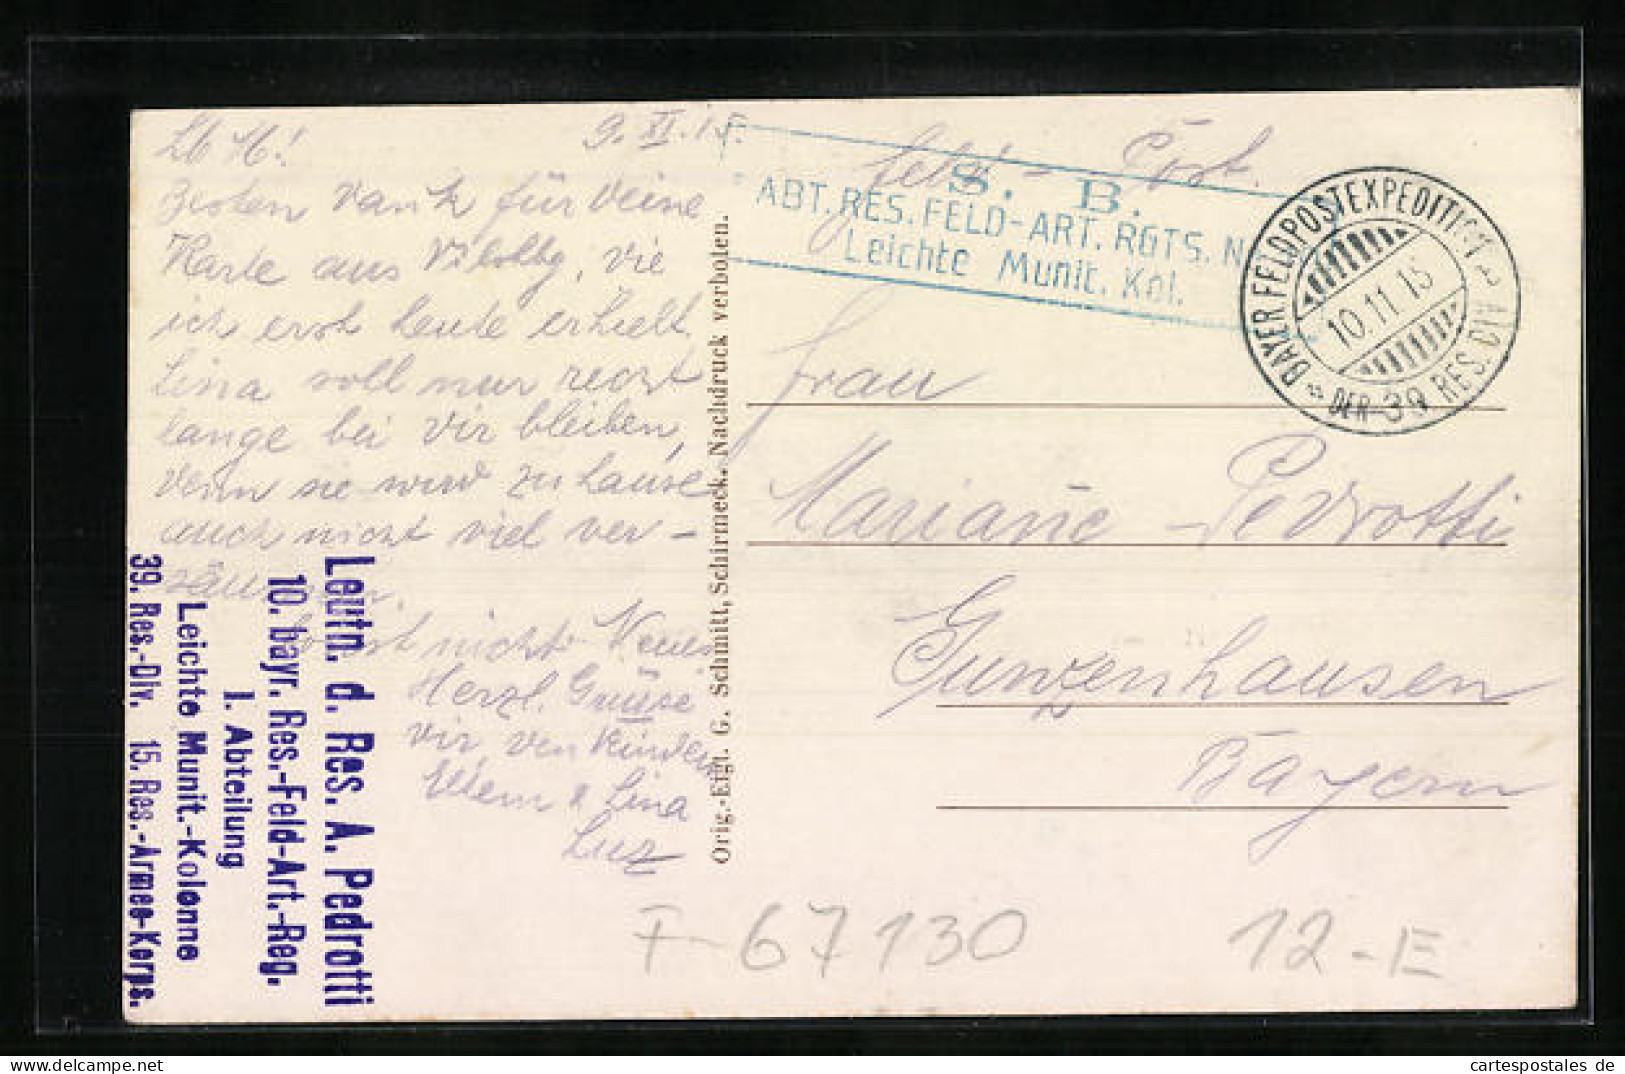 9. XI. 15.
Lb M!
Besten Dank für Deine
Karte aus Vilsbbg, die
ich erst heute erhielt.
Lina soll nur recht
lange bei Dir bleiben,
denn sie wird zu Hause
auch nicht viel ver-
säumen.
Sonst nichts Neues
Herzl. Grüsse
Dir, den Kindern
& Lina
Leutn. d. Res. A. Pedrotti
10. bayr. Res.-Feld-Art.-Reg.
I. Abteilung
Leichte Munit.-Kolonne
39. Res.-Div. 15. Res.-Armee-Korps.
Orig.-Eigt. G. Schmitt, Schirmeck. Nachdruck verboten.
Feld-Post.
S. B.
ABT. RES. FELD-ART. RGTS. N
Leichte Munit. Kol.
BAYER FELDPOSTEXPEDITION
10.11.15
DER 39 RES. DIV
Frau
Mariane Pedrotti
Gunzenhausen
Bayern
F-67130
12-E
cartespostales de